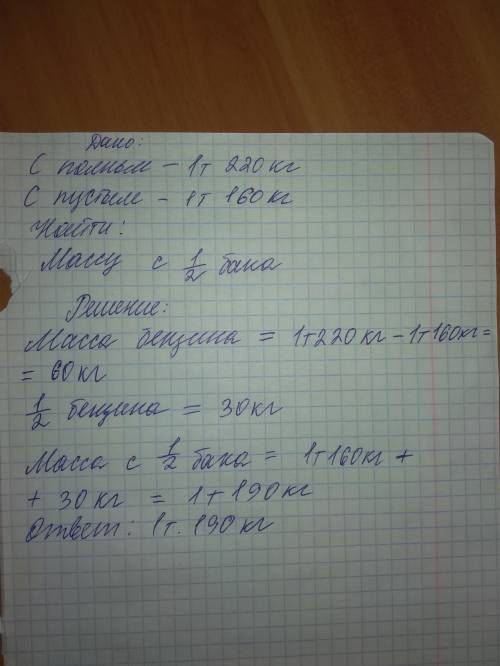 Дано:
С полным - 1т 220 кг
С пустым - 1т 160 кг
Найти:
Массу с 1/2 бака
Решение:
Масса бензина = 1т220кг-1т160кг=
= 60 кг
1/2 бензина = 30кг
Масса с 1/2 бака = 1т160кг +
+ 30 кг = 1т190кг
Ответ: 1т. 190 кг